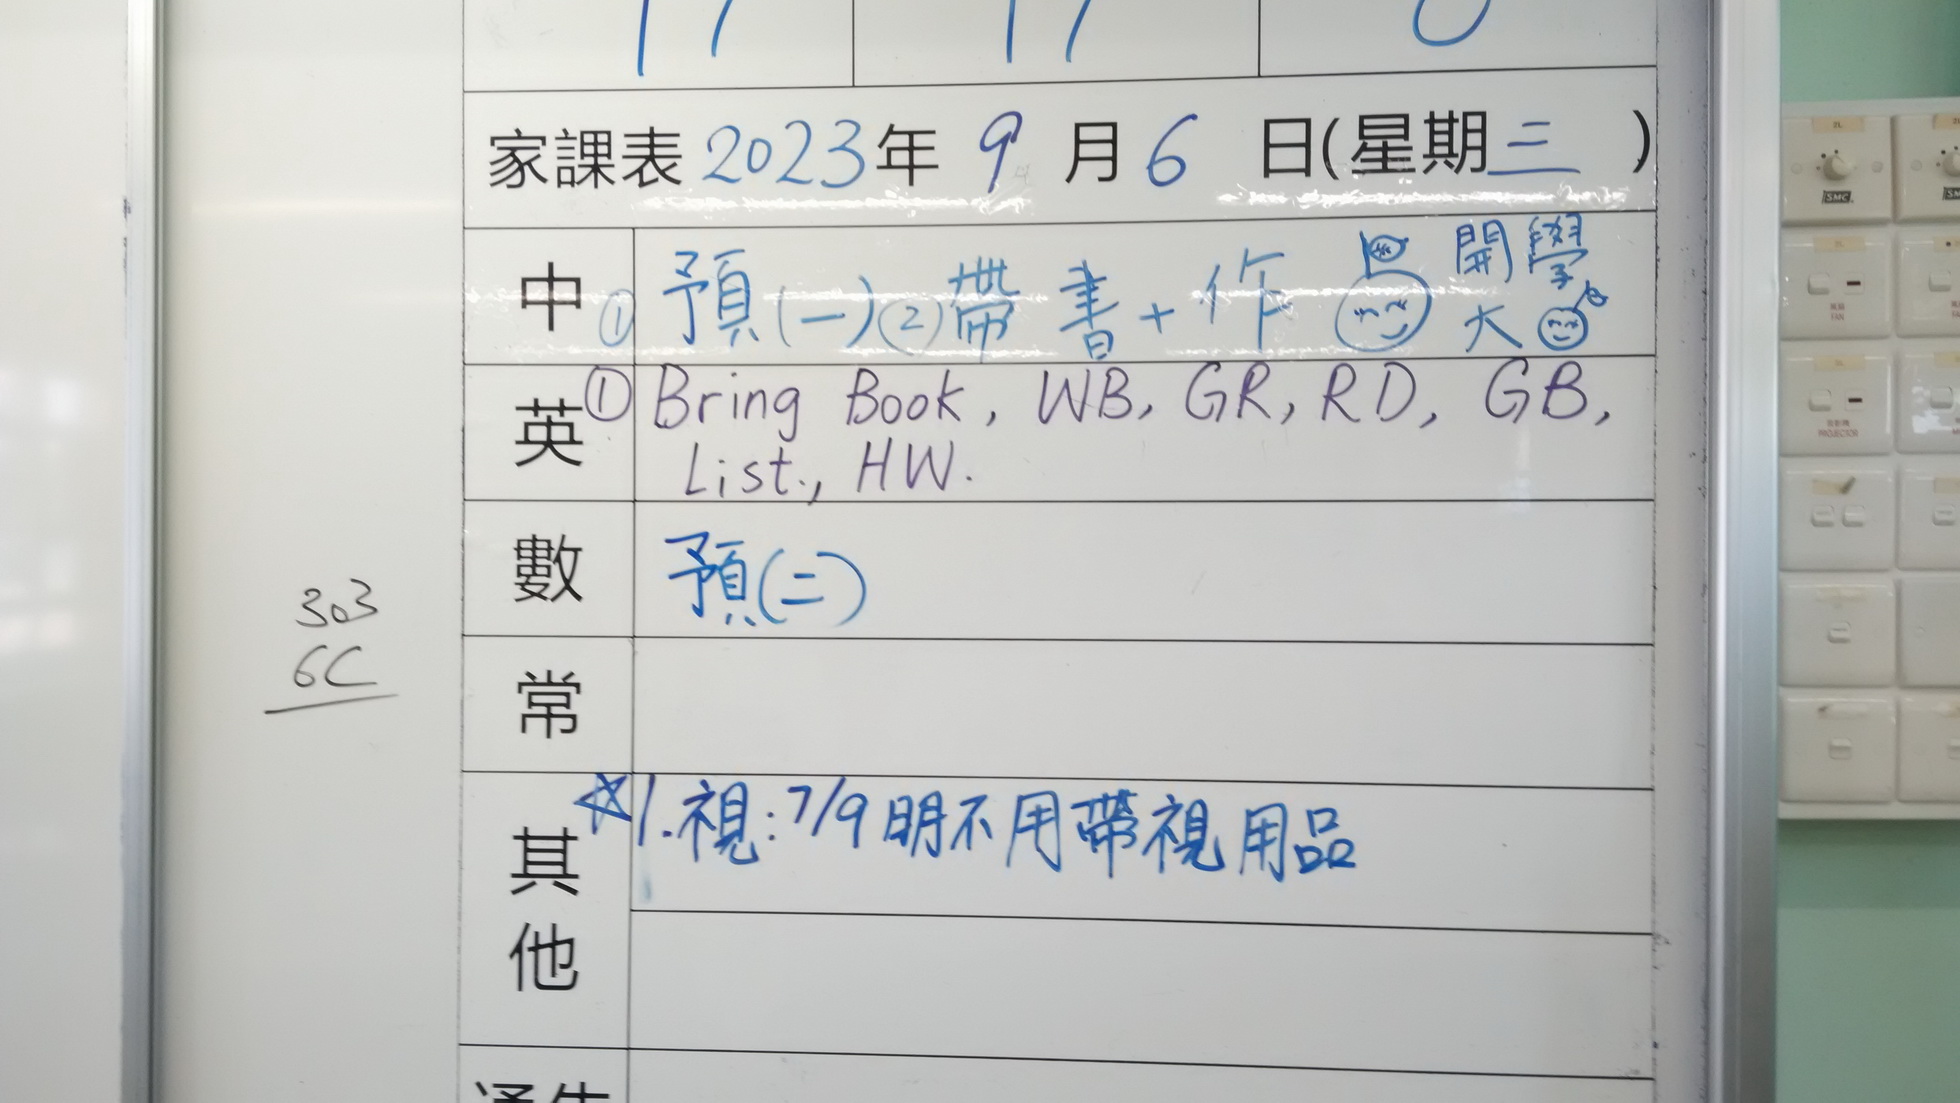 家課表 2023年 9 月 6 日(星期三 )
中 ① 預(一) ② 帶書+作 開學
大
英 ① Bring Book, WB, GR, RD, GB,
List., HW.
數 預(二)
常
其他 ☆1. 視: 7/9 明不用帶視用品
303
6C
SMC
PROJECTOR